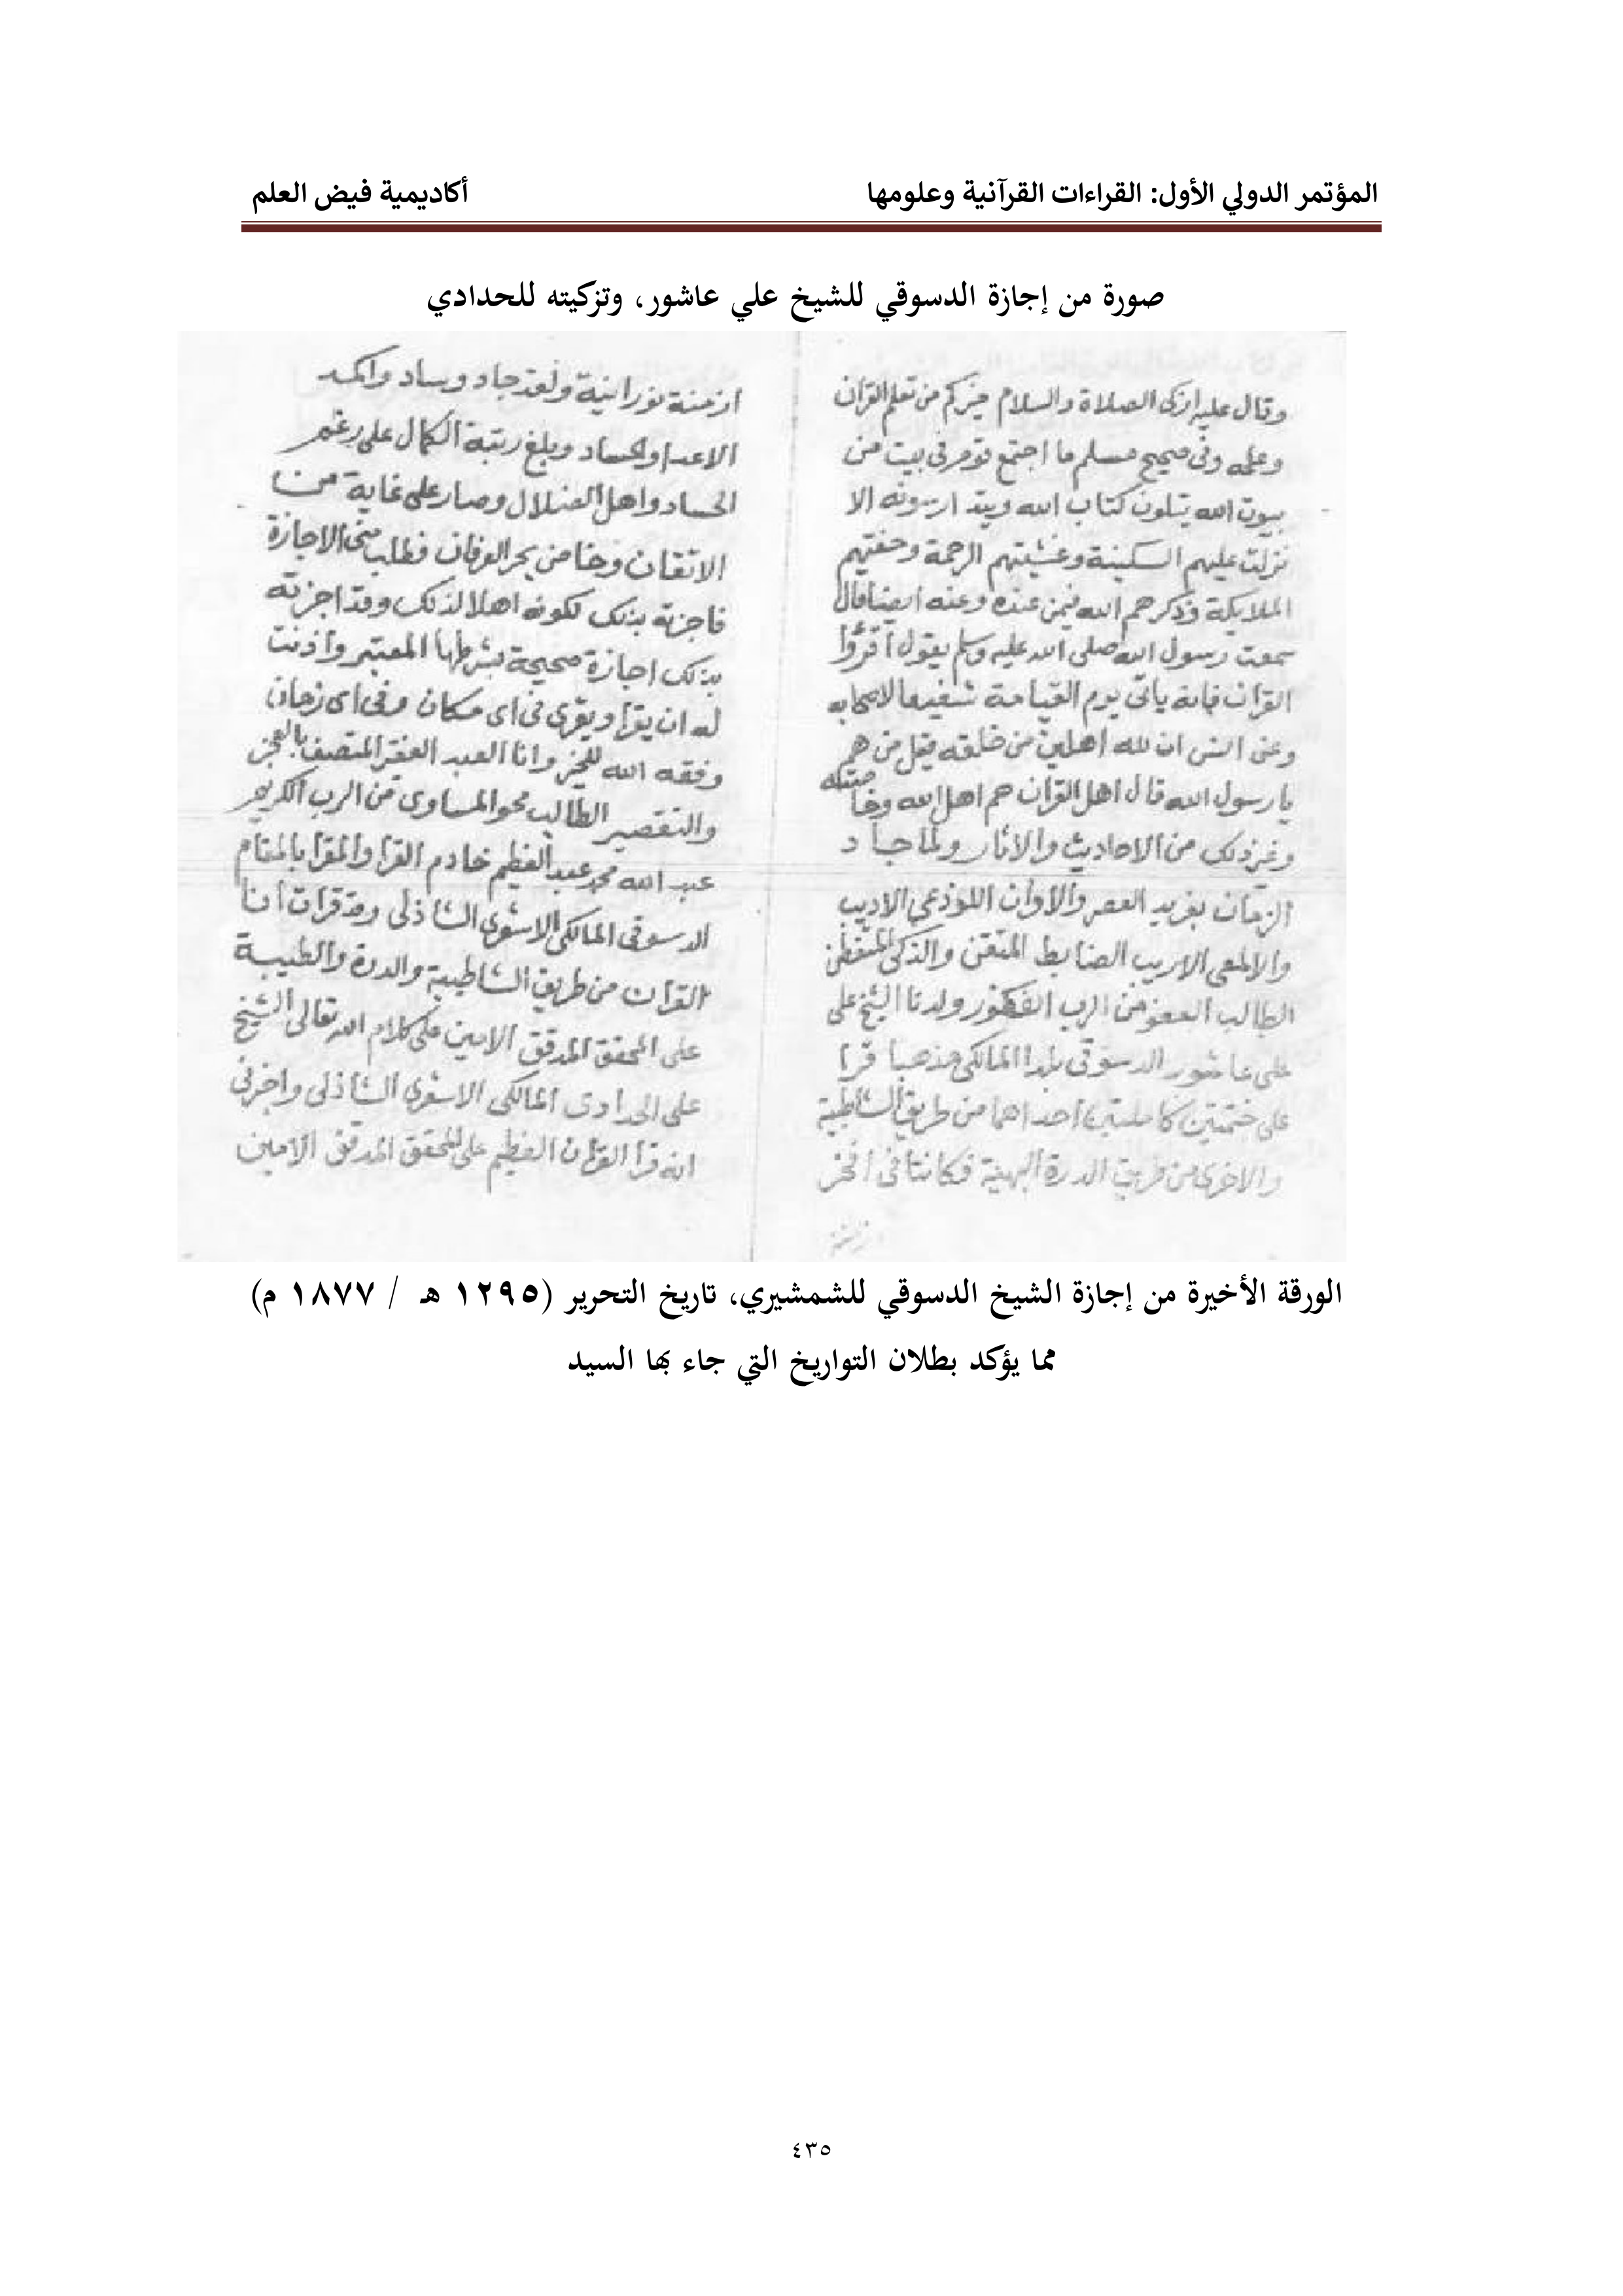 المؤتمر الدولي الأول: القراءات القرآنية وعلومها
أكاديمية فيض العلم
صورة من إجازة الدسوقي للشيخ علي عاشور، وتزكيته للحدادي
وقال عليه ازكى الصلاة والسلام خيركم من تعلم القران
وعلمه وفى صحيح مسلم ما اجتمع قوم فى بيت من
بيوت الله يتلون كتاب الله ويتدارسونه الا
نزلت عليهم السكينة وغشيتهم الرحمة وحفتهم
الملايكة وذكرهم الله فيمن عنده وعنه ايضا قال
سمعت رسول الله صلى الله عليه وسلم يقول اقرؤا
القران فانه ياتى يوم القيامة شفيعا لاصحابه
وعن انس ان لله اهلين من خلقه قيل من هم
يا رسول الله قال اهل القران هم اهل الله وخاصته
وغير ذلك من الاحاديث والاثار ولما جاد
الزمان بفريد العصر والاوان اللوذعى الاديب
والالمعى الاريب الضابط المتقن والذكى المتفطن
الطالب العفو من الرب الغفور ولدنا الشيخ على
على عاشور الدسوقى بلدا المالكى مذهبا قرا
على ختمتين كاملتين احداهما من طريق الشاطبية
والاخرى من طريق الدرة البهية فكانتا فى افخر
ازمنة نورانية ولقد جاد وساد واكمد
الاعدا والحساد وبلغ رتبة الكمال على رغم
الحساد واهل الضلال وصار على غاية من
الاتقان وخاض بحر العرفان فطلب منى الاجازة
فاجزته بذلك لكونه اهلا لذلك وقد اجزته
بذلك اجازة صحيحة بشرطها المعتبر واذنت
له ان يقرا ويقرى فى اى مكان وفى اى زمان
وفقه الله للخير وانا العبد الفقر المتصف بالعجز
والتقصير الطالب محو المساوى من الرب الكريم
عبد الله محمد عبد العظيم خادم القرا والمقرا بالمقام
الدسوقى المالكى الاشعرى الشاذلى وقد قرات انا
القران من طريق الشاطبية والدرة والطيبة
على المحقق المدقق الامين على كلام الله تعالى الشيخ
على الحدادى المالكى الاشعرى الشاذلى واخبرنى
انه قرا القران العظيم على المحقق المدقق الامين
الورقة الأخيرة من إجازة الشيخ الدسوقي للشمشيري، تاريخ التحرير (١٢٩٥ هـ / ١٨٧٧ م)
مما يؤكد بطلان التواريخ التي جاء بها السيد
٤٣٥